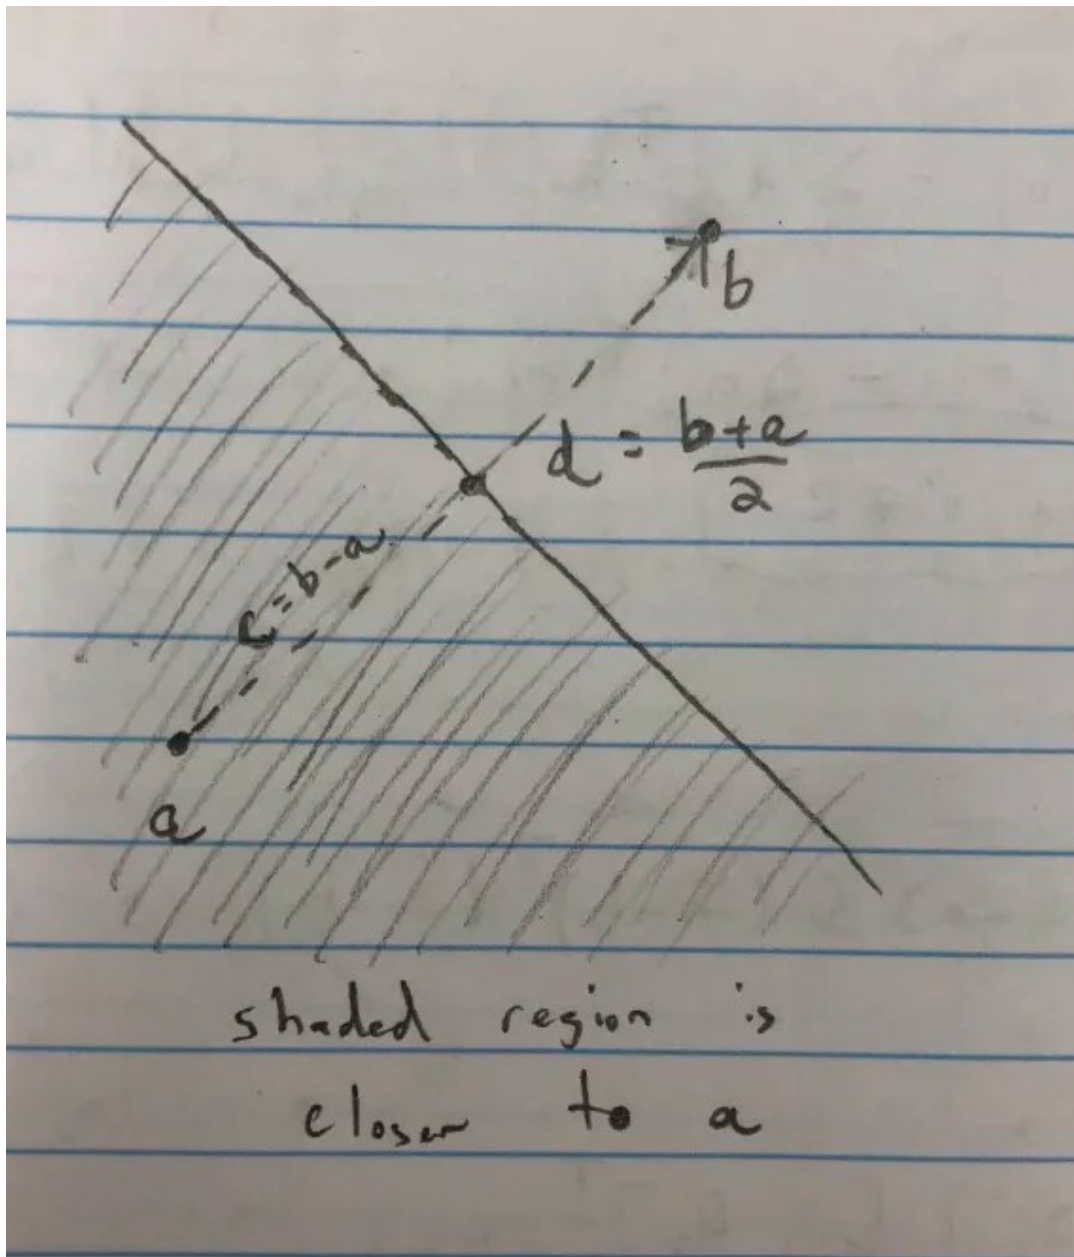 b
d = b+a
2
c = b-a
a
shaded region is
closer to a